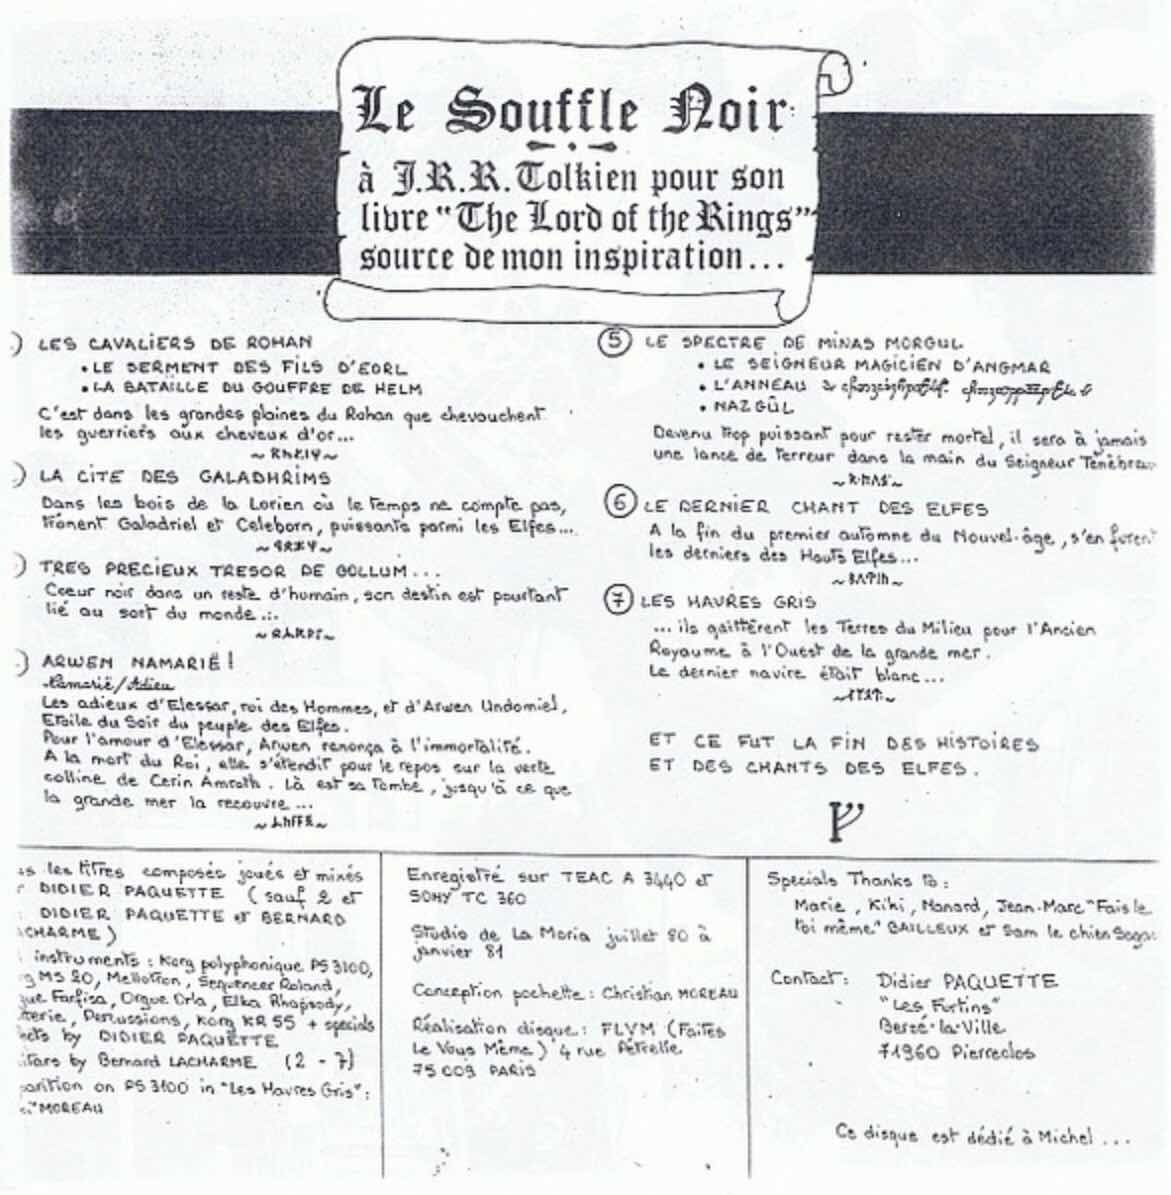 Le Souffle Noir
à J.R.R. Tolkien pour son
livre "The Lord of the Rings"
source de mon inspiration...
) LES CAVALIERS DE ROHAN
• LE SERMENT DES FILS D'EORL
• LA BATAILLE DU GOUFFRE DE HELM
C'est dans les grandes plaines du Rohan que chevauchent
les guerriers aux cheveux d'or...
) LA CITE DES GALADHRIMS
Dans les bois de la Lorien où le temps ne compte pas,
trônent Galadriel et Celeborn, puissants parmi les Elfes...
) TRES PRECIEUX TRESOR DE GOLLUM...
Coeur noir dans un reste d'humain, son destin est pourtant
lié au sort du monde...
) ARWEN NAMARIË!
Namarië/Adieu
Les adieux d'Elessar, roi des Hommes, et d'Arwen Undomiel,
Etoile du Soir du peuple des Elfes.
Pour l'amour d'Elessar, Arwen renonça à l'immortalité.
A la mort du Roi, elle s'étendit pour le repos sur la verte
colline de Cerin Amroth. Là est sa tombe, jusqu'à ce que
la grande mer la recouvre...
5 LE SPECTRE DE MINAS MORGUL
• LE SEIGNEUR MAGICIEN D'ANGMAR
• L'ANNEAU
• NAZGÛL
Devenu trop puissant pour rester mortel, il sera à jamais
une lance de terreur dans la main du Seigneur Ténébreu
6 LE DERNIER CHANT DES ELFES
A la fin du premier automne du Nouvel-âge, s'en furent
les derniers des Hauts Elfes...
7 LES HAVRES GRIS
... ils quittèrent les Terres du Milieu pour l'Ancien
Royaume à l'Ouest de la grande mer.
Le dernier navire était blanc...
ET CE FUT LA FIN DES HISTOIRES
ET DES CHANTS DES ELFES.
us les titres composés joués et mixés
r DIDIER PAQUETTE (sauf 2 et
: DIDIER PAQUETTE et BERNARD
ACHARME)
instruments : Korg polyphonique PS 3100,
g MS 20, Mellotron, Sequencer Roland,
gue Farfisa, Orgue Orla, Elka Rhapsody,
tterie, Percussions, Korg KR 55 + specials
ects by DIDIER PAQUETTE
itars by Bernard LACHARME (2 - 7)
parition on PS 3100 in "Les Havres Gris":
" MOREAU
Enregistré sur TEAC A 3440 et
SONY TC 360
Studio de La Moria juillet 80 à
janvier 81
Conception pochette : Christian MOREAU
Réalisation disque : FLVM (Faites
Le Vous Même) 4 rue Pétrelle
75 009 PARIS
Specials Thanks to :
Marie, Kiki, Nanard, Jean-Marc "Fais le
toi même" BAILLEUX et Sam le chien
Contact : Didier PAQUETTE
"Les Furtins"
Berzé-la-Ville
71960 Pierreclos
Ce disque est dédié à Michel ...